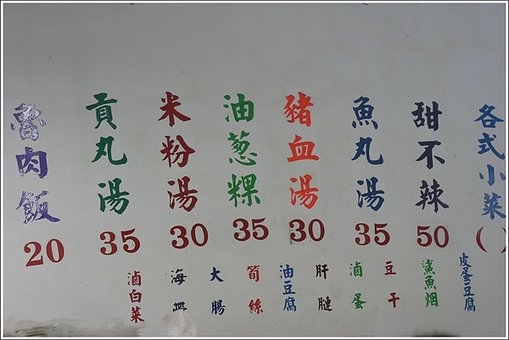 魯肉飯
20
貢丸湯
35
米粉湯
30
油蔥粿
35
豬血湯
30
魚丸湯
35
甜不辣
50
各式小菜
( )
滷白菜
海
大腸
筍絲
油豆腐
肝腱
滷蛋
豆干
鯊魚烟
皮蛋豆腐